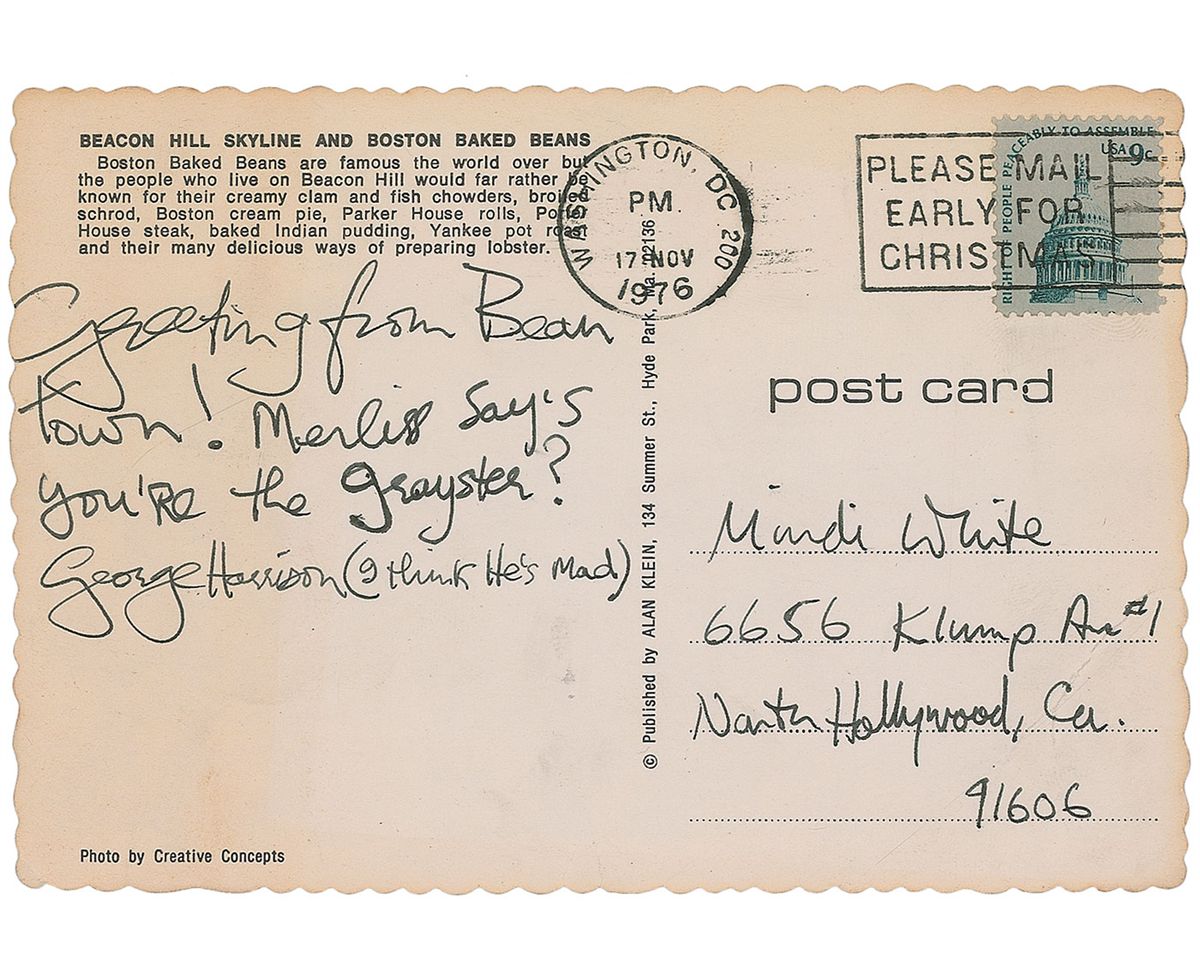 BEACON HILL SKYLINE AND BOSTON BAKED BEANS
Boston Baked Beans are famous the world over but
the people who live on Beacon Hill would far rather be
known for their creamy clam and fish chowders, broiled
schrod, Boston cream pie, Parker House rolls, Porter
House steak, baked Indian pudding, Yankee pot roast
and their many delicious ways of preparing lobster.
Greeting from Bean
town! Merliss Say's
you're the grayster?
George Harrison (I think He's mad)
Photo by Creative Concepts
© Published by ALAN KLEIN, 134 Summer St., Hyde Park, Ma. 02136
WASHINGTON, DC 200
PM
17 NOV
1976
PLEASE MAIL
EARLY FOR
CHRISTMAS
RIGHT OF PEOPLE PEACEABLY TO ASSEMBLE
USA 9c
post card
Mindi White
6656 Klump Av #1
North Hollywood, Ca.
91606